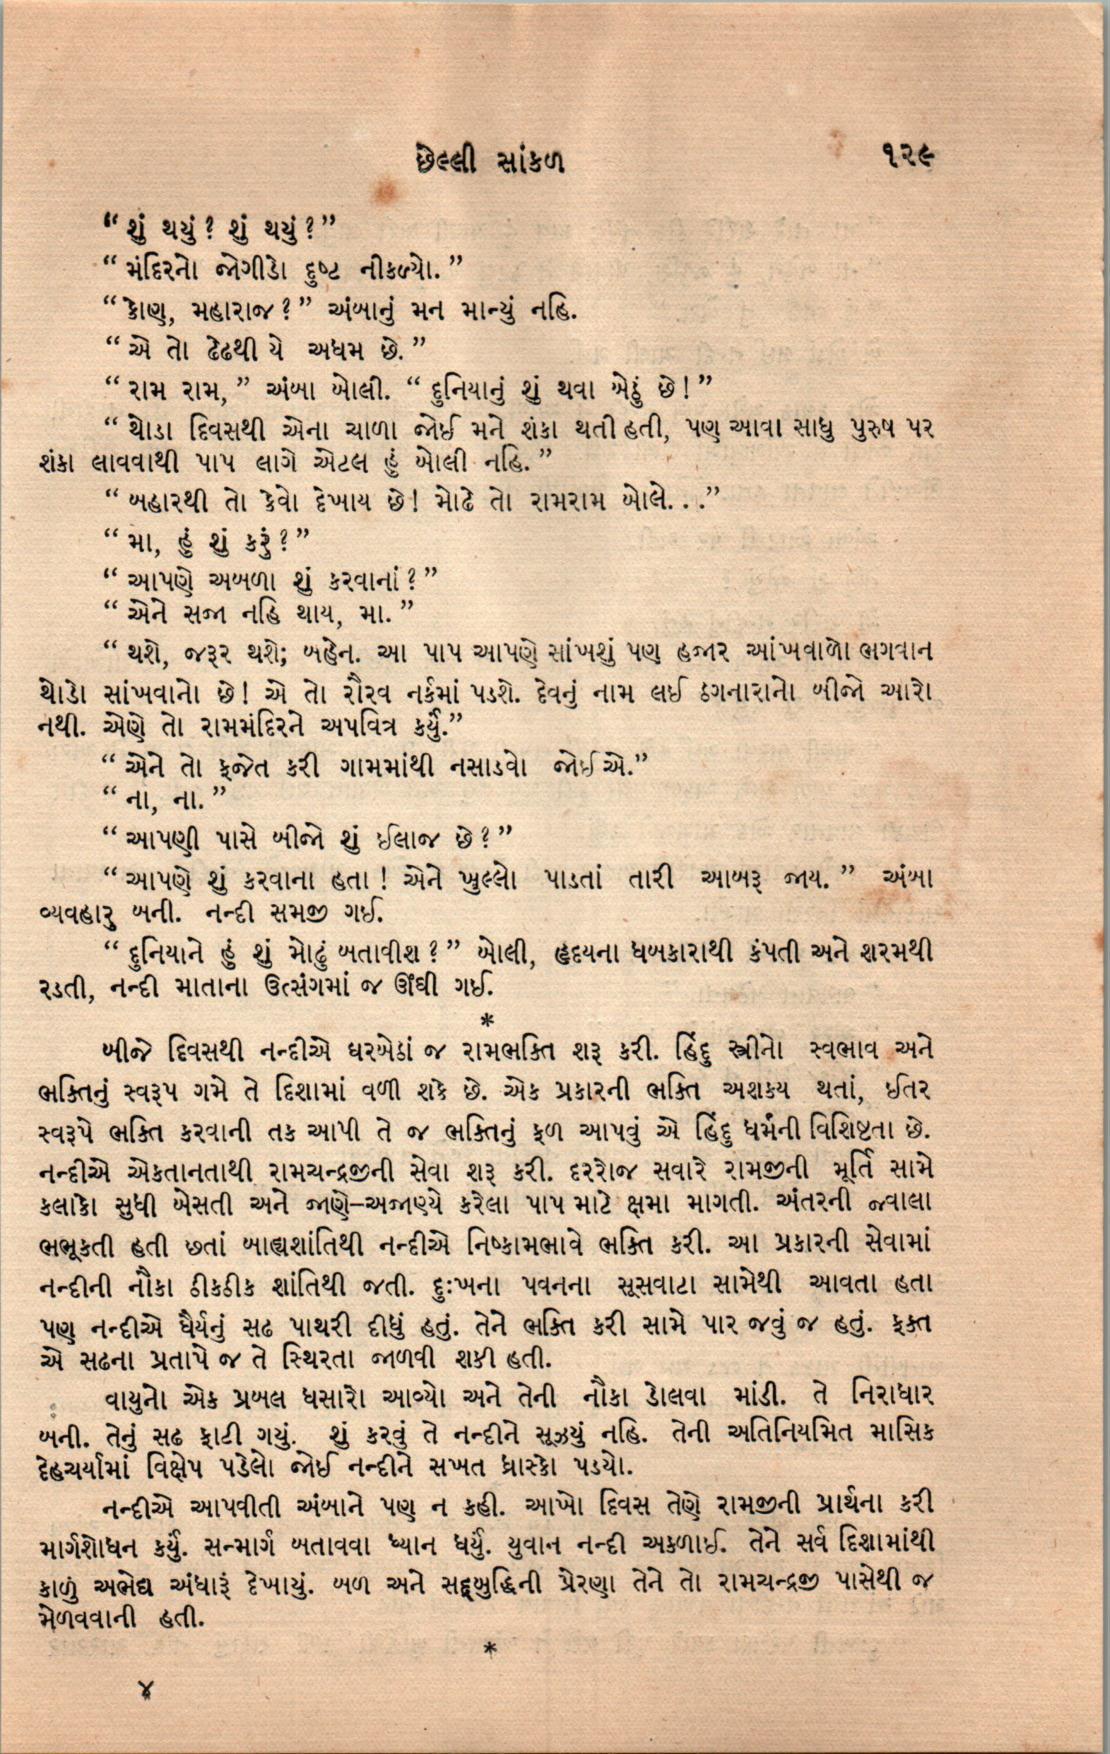 છેલ્લી સાંકળ ૧૨૯
“ શું થયું? શું થયું?”
“ મંદિરનો જોગીડો દુષ્ટ નીકળ્યો. ”
“ કોણ, મહારાજ?” અંબાનું મન માન્યું નહિ.
“ એ તો ઢેઢથી યે અધમ છે. ”
“ રામ રામ, ” અંબા બોલી. “ દુનિયાનું શું થવા બેઠું છે! ”
“ થોડા દિવસથી એના ચાળા જોઈ મને શંકા થતી હતી, પણ આવા સાધુ પુરુષ પર
શંકા લાવવાથી પાપ લાગે એટલ હું બોલી નહિ. ”
“ બહારથી તો કેવો દેખાય છે! મોઢે તો રામરામ બોલે. . .”
“ મા, હું શું કરું? ”
“ આપણે અબળા શું કરવાનાં? ”
“ એને સજા નહિ થાય, મા. ”
“ થશે, જરૂર થશે; બહેન. આ પાપ આપણે સાંખશું પણ હજાર આંખવાળો ભગવાન
થોડો સાંખવાનો છે! એ તો રૌરવ નર્કમાં પડશે. દેવનું નામ લઈ ઠગનારાનો બીજો આરો
નથી. એણે તો રામમંદિરને અપવિત્ર કર્યું.”
“ એને તો ફજેત કરી ગામમાંથી નસાડવો જોઈએ.”
“ ના, ના. ”
“ આપણી પાસે બીજો શું ઈલાજ છે? ”
“ આપણે શું કરવાના હતા ! એને ખુલ્લો પાડતાં તારી આબરૂ જાય. ” અંબા
વ્યવહારુ બની. નન્દી સમજી ગઈ.
“ દુનિયાને હું શું મોઢું બતાવીશ? ” બોલી, હૃદયના ધબકારાથી કંપતી અને શરમથી
રડતી, નન્દી માતાના ઉત્સંગમાં જ ઊંઘી ગઈ.
*
બીજે દિવસથી નન્દીએ ઘરબેઠાં જ રામભક્તિ શરૂ કરી. હિંદુ સ્ત્રીનો સ્વભાવ અને
ભક્તિનું સ્વરૂપ ગમે તે દિશામાં વળી શકે છે. એક પ્રકારની ભક્તિ અશકય થતાં, ઈતર
સ્વરૂપે ભક્તિ કરવાની તક આપી તે જ ભક્તિનું ફળ આપવું એ હિંદુ ધર્મની વિશિષ્ટતા છે.
નન્દીએ એકતાનતાથી રામચન્દ્રજીની સેવા શરૂ કરી. દરરોજ સવારે રામજીની મૂર્તિ સામે
કલાકો સુધી બેસતી અને જાણે–અજાણ્યે કરેલા પાપ માટે ક્ષમા માગતી. અંતરની જ્વાલા
ભભૂકતી હતી છતાં બાહ્યશાંતિથી નન્દીએ નિષ્કામભાવે ભક્તિ કરી. આ પ્રકારની સેવામાં
નન્દીની નૌકા ઠીકઠીક શાંતિથી જતી. દુઃખના પવનના સૂસવાટા સામેથી આવતા હતા
પણ નન્દીએ ધૈર્યનું સઢ પાથરી દીધું હતું. તેને ભક્તિ કરી સામે પાર જવું જ હતું. ફક્ત
એ સઢના પ્રતાપે જ તે સ્થિરતા જાળવી શકી હતી.
વાયુનો એક પ્રબલ ધસારો આવ્યો અને તેની નૌકા ડોલવા માંડી. તે નિરાધાર
બની. તેનું સઢ ફાટી ગયું. શું કરવું તે નન્દીને સૂઝ્યું નહિ. તેની અતિનિયમિત માસિક
દેહચર્યામાં વિક્ષેપ પડેલો જોઈ નન્દીને સખત ધ્રાસ્કો પડયો.
નન્દીએ આપવીતી અંબાને પણ ન કહી. આખો દિવસ તેણે રામજીની પ્રાર્થના કરી
માર્ગશોધન કર્યું. સન્માર્ગ બતાવવા ધ્યાન ધર્યું. યુવાન નન્દી અકળાઈ. તેને સર્વ દિશામાંથી
કાળું અભેદ્ય અંધારૂં દેખાયું. બળ અને સદ્બુદ્ધિની પ્રેરણા તેને તો રામચન્દ્રજી પાસેથી જ
મેળવવાની હતી.
*
૪